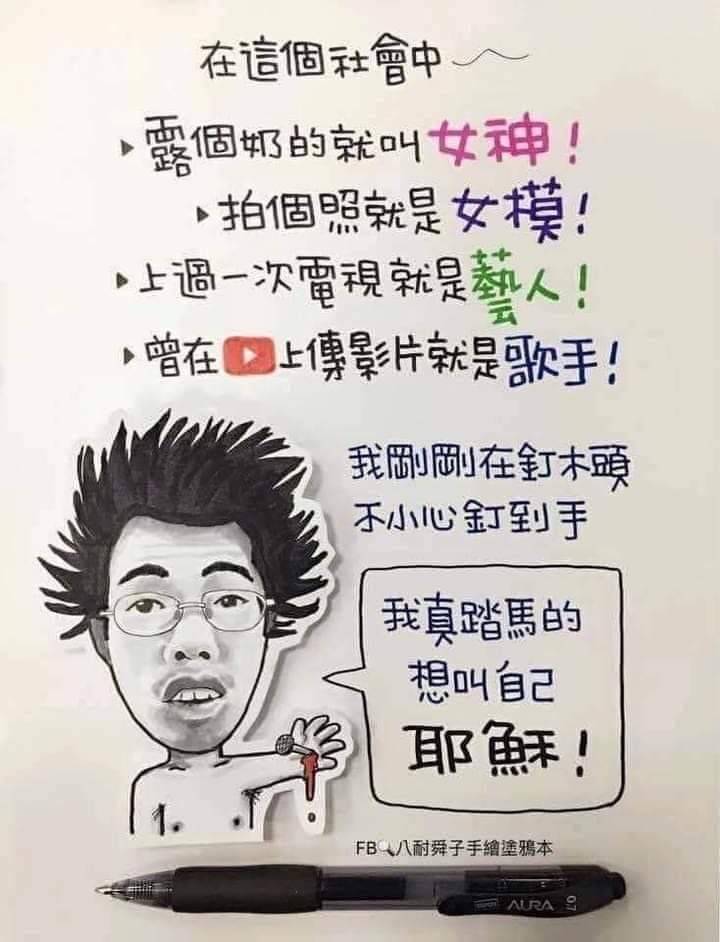 在這個社會中
▸露個奶的就叫女神！
▸拍個照就是女模！
▸上過一次電視就是藝人！
▸曾在上傳影片就是歌手！
我剛剛在釘木頭
不小心釘到手
我真踏馬的
想叫自己
耶穌！
FB🔍八耐舜子手繪塗鴉本
AURA 0.7